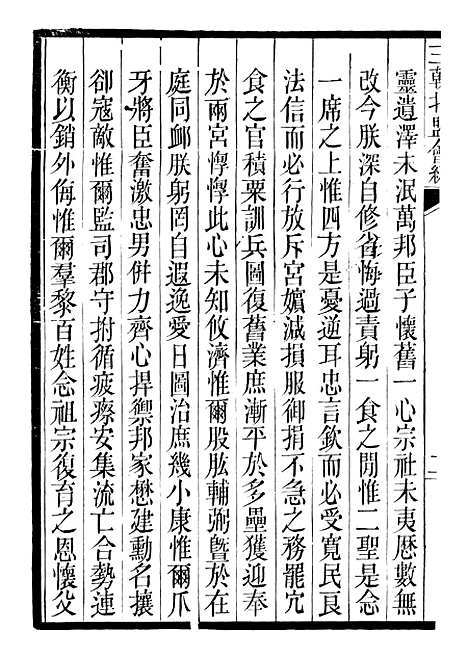 三朝北盟會編
靈遺澤未泯萬邦臣子懷舊一心宗祉未夷曆數無
改今朕深自修省悔過責躬一食之閒惟二聖是念
一席之上惟四方是憂逆耳忠言欽而必受寬民良
法信而必行放斥宮嬪減損服御捐不急之務罷宂
食之官積粟訓兵圖復舊業庶漸平於多壘獲迎奉
於兩宮惸惸此心未知攸濟惟爾股肱輔弼曁於在
庭同卹朕躬罔自遐逸愛日圖治庶幾小康惟爾爪
牙將臣奮激忠男併力齊心捍禦邦家懋建勳名攘
卻寇敵惟爾監司郡守拊循疲瘵安集流亡合勢連
衡以銷外侮惟爾羣黎百姓念祖宗復育之恩懷父